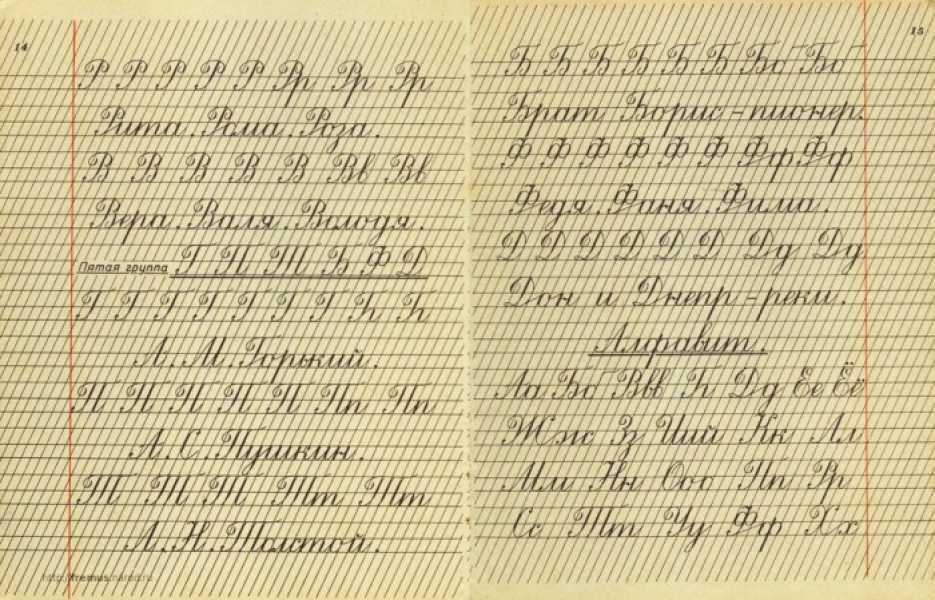 14
Р Р Р Р Р Рр Рр Рр
Рита. Рома. Роза.
В В В В В Вв Вв
Вера. Валя. Володя.
Пятая группа Г П Т Б Ф Д
Г Г Г Г Г Г Г Гг Гг
А. М. Горький.
П П П П П Пп Пп
А. С. Пушкин.
Т Т Т Тт Тт
Л. Н. Толстой.
http://fremus.narod.ru
15
Б Б Б Б Б Б Бб Бб
Брат Борис - пионер.
Ф Ф Ф Ф Ф Ф Фф Фф
Федя. Фаня. Фима.
Д Д Д Д Д Д Дд Дд
Дон и Днепр - реки.
Алфавит.
Аа Бб Ввв Гг Дд Ее Ёё
Жж Зз Иий Кк Лл
Мм Нн Ооо Пп Рр
Сс Тт Уу Фф Хх